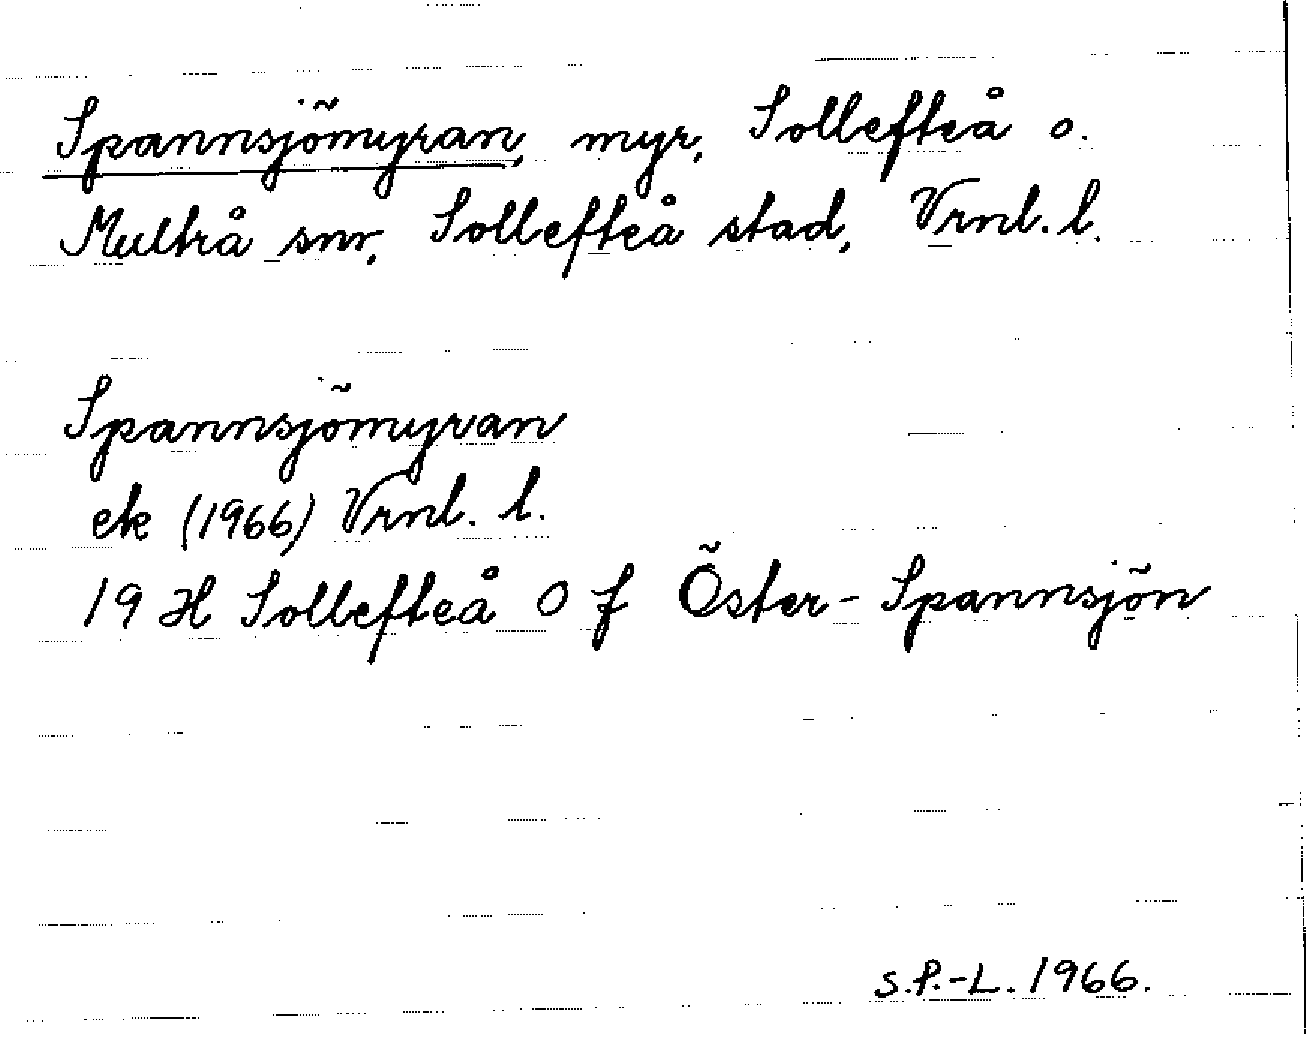 Spannsjömyran, myr, Sollefteå o.
Multrå snr, Sollefteå stad, Vrnl. l.
Spannsjömyran
ek (1966) Vrnl. l.
19 H Sollefteå O f Öster-Spannsjön
S.P.-L. 1966.